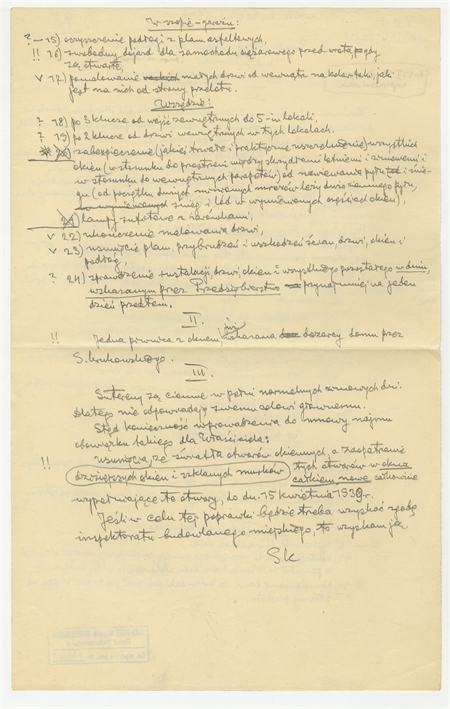 W szopie-garażu:
? — 15) oczyszczenie podłogi z plam asfaltowych,
!! 16) swobodny dojazd dla samochodu ciężarowego przed wrota, gdy
są otwarte,
v 17) pomalowanie małych drzwi od wewnątrz na kolor taki, jaki
jest na nich od strony przedłu.
Wszędzie:
? 18) po 3 klucze od wejść zewnętrznych do 5-iu lokali,
? 19) po 2 klucze od drzwi wewnętrznych w tych lokalach,
20) zabezpieczenie (jakieś trwałe i praktyczne uszczelnienie) wszystkich
okien (w stosunku do przestrzeni między skrzydłami letniemi i zimowemi i
w stosunku do wewnętrznych parapetów) od nawiewania pyłu i śnie-
gu (od początku mrozów leży dużo
śnieg i lód w wymienionych częściach okien),
21) lampy sufitowe z żarówkami,
v 22) ukończenie malowania drzwi,
v 23) usunięcie plam, przybrudzeń i uszkodzeń ścian, drzwi, okien i
podłóg,
? 24) sprawdzenie instalacji, drzwi, okien i wszystkiego pozostałego w dniu,
wskazanym przez Przedsiębiorstwo przynajmniej na jeden
dzień przedtem.
II.
!! Jedna piwnica z oknem, już wskazana dozorcy domu przez
S.
III.
Sutereny są ciemne w pełni normalnych zimowych dni:
dlatego nie odpowiadają swemu celowi głównemu.
Stąd konieczność wprowadzenia do umowy najmu
obowiązku takiego dla Właściciela:
!! usunięcia ze światła otworów okiennych, a zaopatrzenie
dzisiejszych okien i szklanych murków tych otworów w okna
całkiem nowe, całkowicie
wypełniające te otwory, do dn. 15 kwietnia 1939 r.
Jeśli w celu tej poprawki będzie trzeba uzyskać zgodę
inspektoratu budowlanego miejskiego, to uzyskam ją.
SK